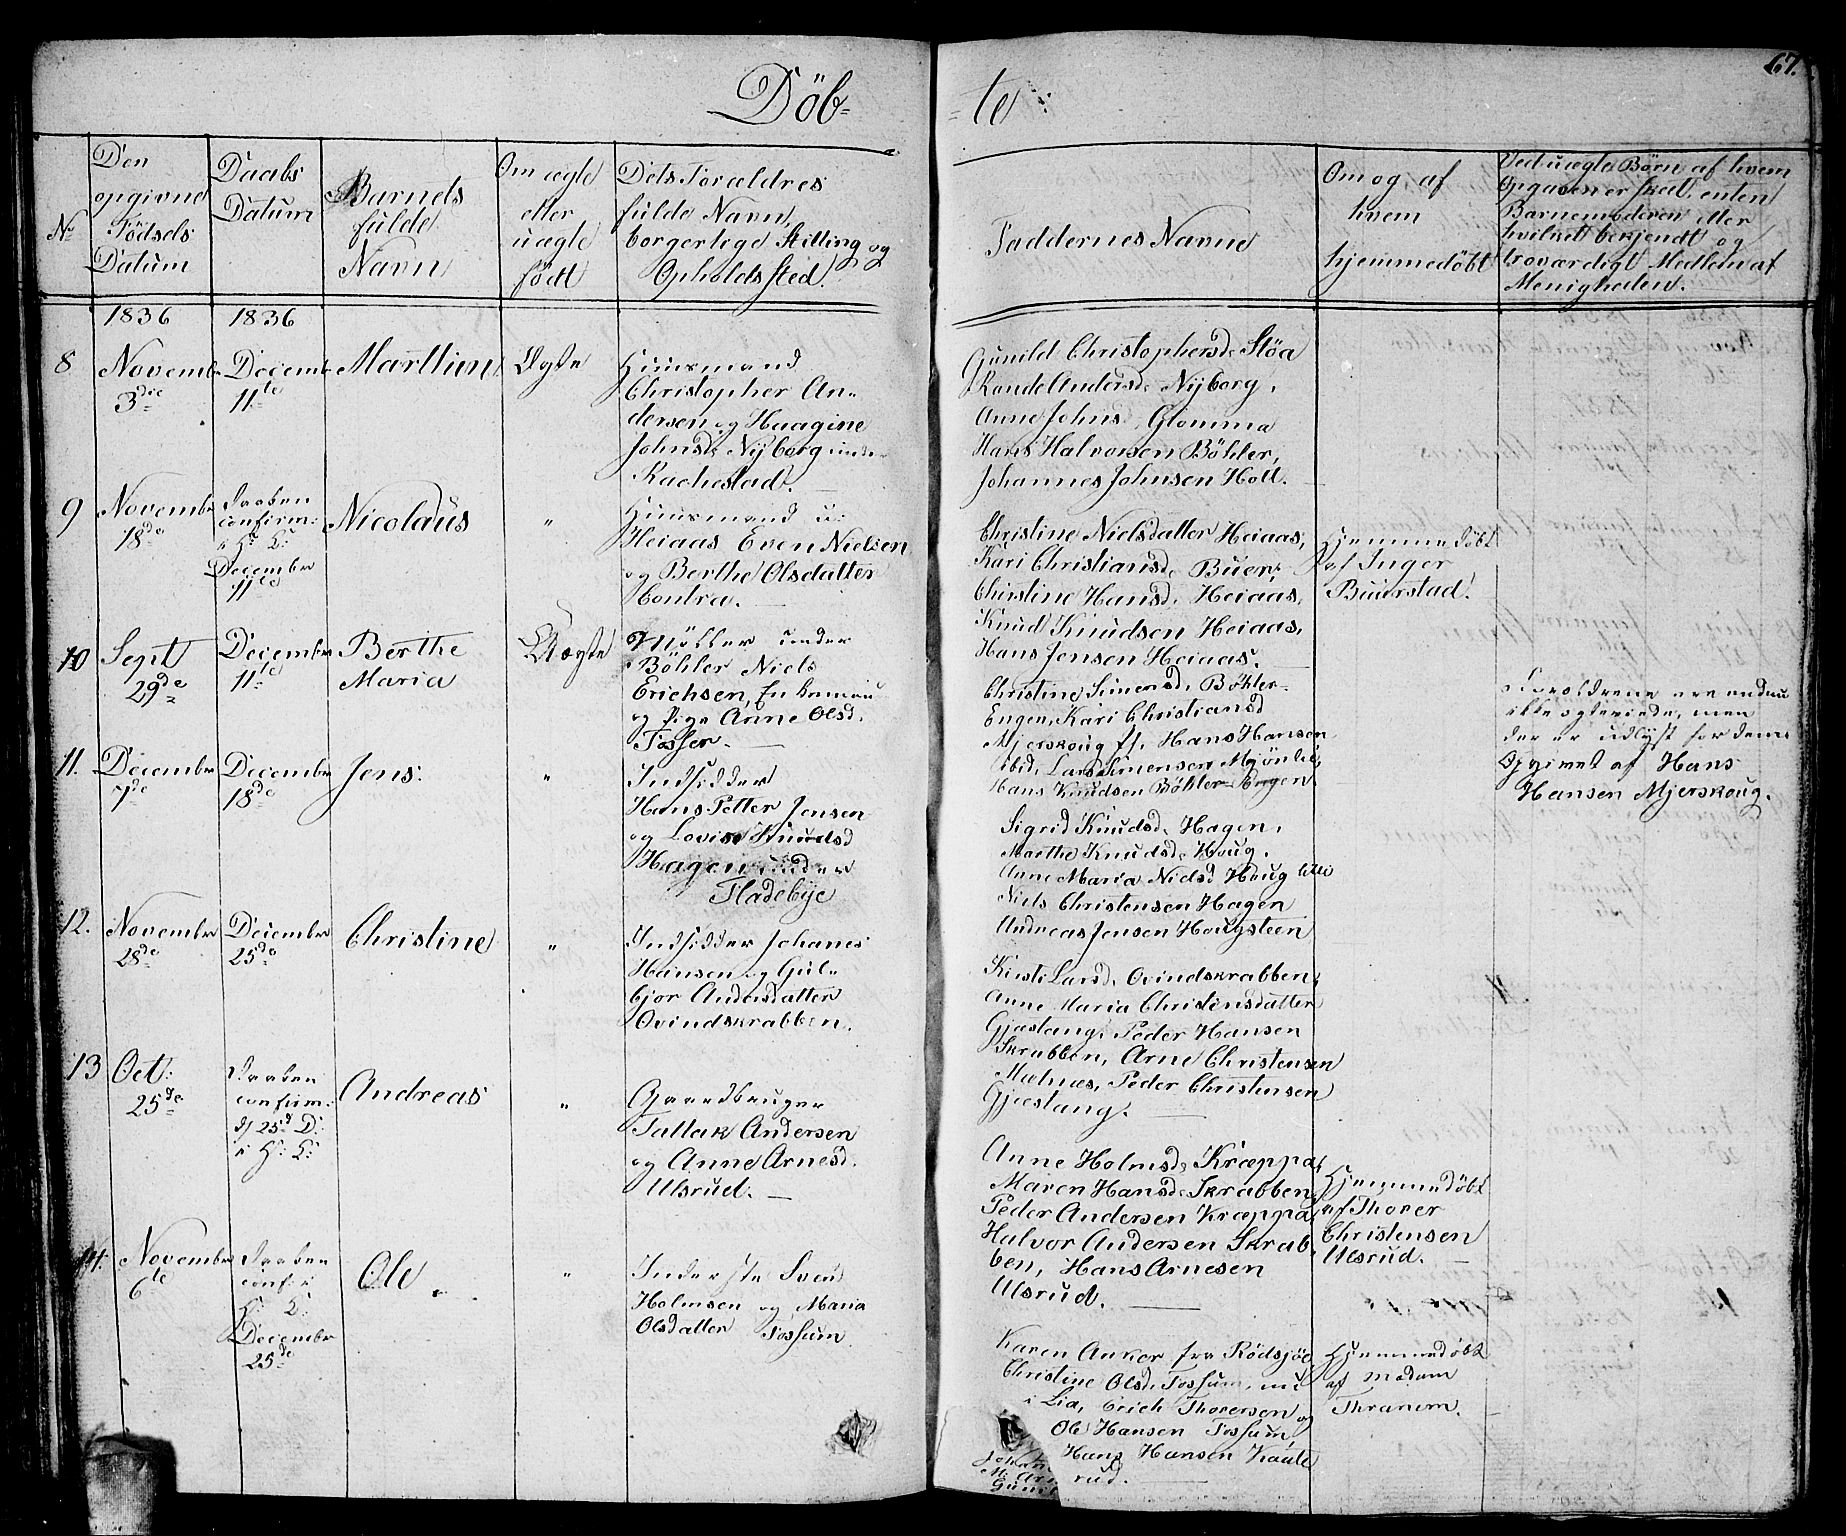 67.
Döb-
-te
No
Den
opgivne
Födsels
Datum
Daabs
Datum
Barnets
fulde
Navn
Om ægte
eller
uægte
födt
Dets Forældres
fulde Navn,
borgerlige Stilling og
Opholdssted.
Faddernes Navne
Om og af
hvem
hjemmedöbt
Ved uægte Börn af hvem
Opgaven er skeet, enten
Barnemoderen eller
hvilket bekjendt og
troværdigt Medlem af
Menigheden.
1836
1836
8
Novembr
3die
Decembr
11te
Marthin
Ægte
Huusmand
Christopher An-
dersen og Haagine
Johnsd. Nijborg under
Rachestad.
Gunild Christophersd. Stöa
Randi Andersd. Nijborg,
Anne Johnsd. Glomma
Hans Halvorsen Böhler,
Johannes Johnsen Holt.
9
Novembr
18de
Daaben
confirm:
i H: K:
Decembr
11te
Nicolaus
"
Huusmand u:
Heiaas Even Nielsen
og Berthe Olsdatter
Contra.
Christine Nielsdatter Heiaas,
Kari Christiansd. Buer,
Christine Hansd. Heiaas,
Knud Knudsen Heiaas,
Hans Jensen Heiaas.
Hjemmedöbt
af Inger
Buerstad.
10
Sept
29de
Decembr
11te
Berthe
Maria
Uægte
Möller under
Böhler Niels
Erichsen, Enkemand
og Pige Anne Olsd.
Fosser.
Christine Simensd. Böhler-
Engen, Kari Christiansd
Mjerskoug, Hans Hansen
ibid, Lars Simensen Mjönlie,
Hans Knudsen Böhler-Engen.
Forældrene ere endnu
ikke egteviede, men
der er udlijst for dem.
Opgivet af Hans
Hansen Mjerskoug.
11.
Decembr
7de
Decembr
18de
Jens.
"
Indsidder
Hans Petter Jensen
og Lovise Knudsd
Hagen under
Fladebije
Sigrid Knudsd. Hagen,
Marthe Knudsd. Houg.
Anne Maria Nielsd Houg
Niels Christensen Hagen
Andreas Jensen Hougsteen
12.
Novembr
28de
Decembr
25de
Christine
"
Indsidder Johanes
Hansen og Gul-
bjor Andersdatter
Ovindskrabben.
Kirsti Larsd. Ovindskrabben,
Anne Maria Christensdatter
Gjæstang, Peder Hansen
Skrabben, Arne Christensen
Melnæs, Peder Christensen
Gjæstang.
13
Oct:
25de
Daaben
confirm:
d 25d D:
i H: K:
Andreas
"
Gaardbruger
Tallak Andersen
og Anne Arnesd.
Ulsrud.
Anne Holmsd. Kræppa,
Maren Hansd. Skrabben
Peder Andersen Kræppa,
Halvor Andersen Skrab-
ben, Hans Arnesen
Ulsrud.
Hjemmedöbt
af Thorer
Christensen
Ulsrud.
14.
Novembr
6te
Daaben
conf: i
H: K:
Decembr
25de
Ole
"
Inderste Sven
Holmsen og Maria
Olsdatter Fossum.
Karen Anker fra Rödsjöe
Christine Olsd. Fossum,
i Lia, Erich Thorersen og
Ole Hansen Fossum,
Hans Hansen Kaate
rud.
Hjemmedöbt
af Madam
Thranem.